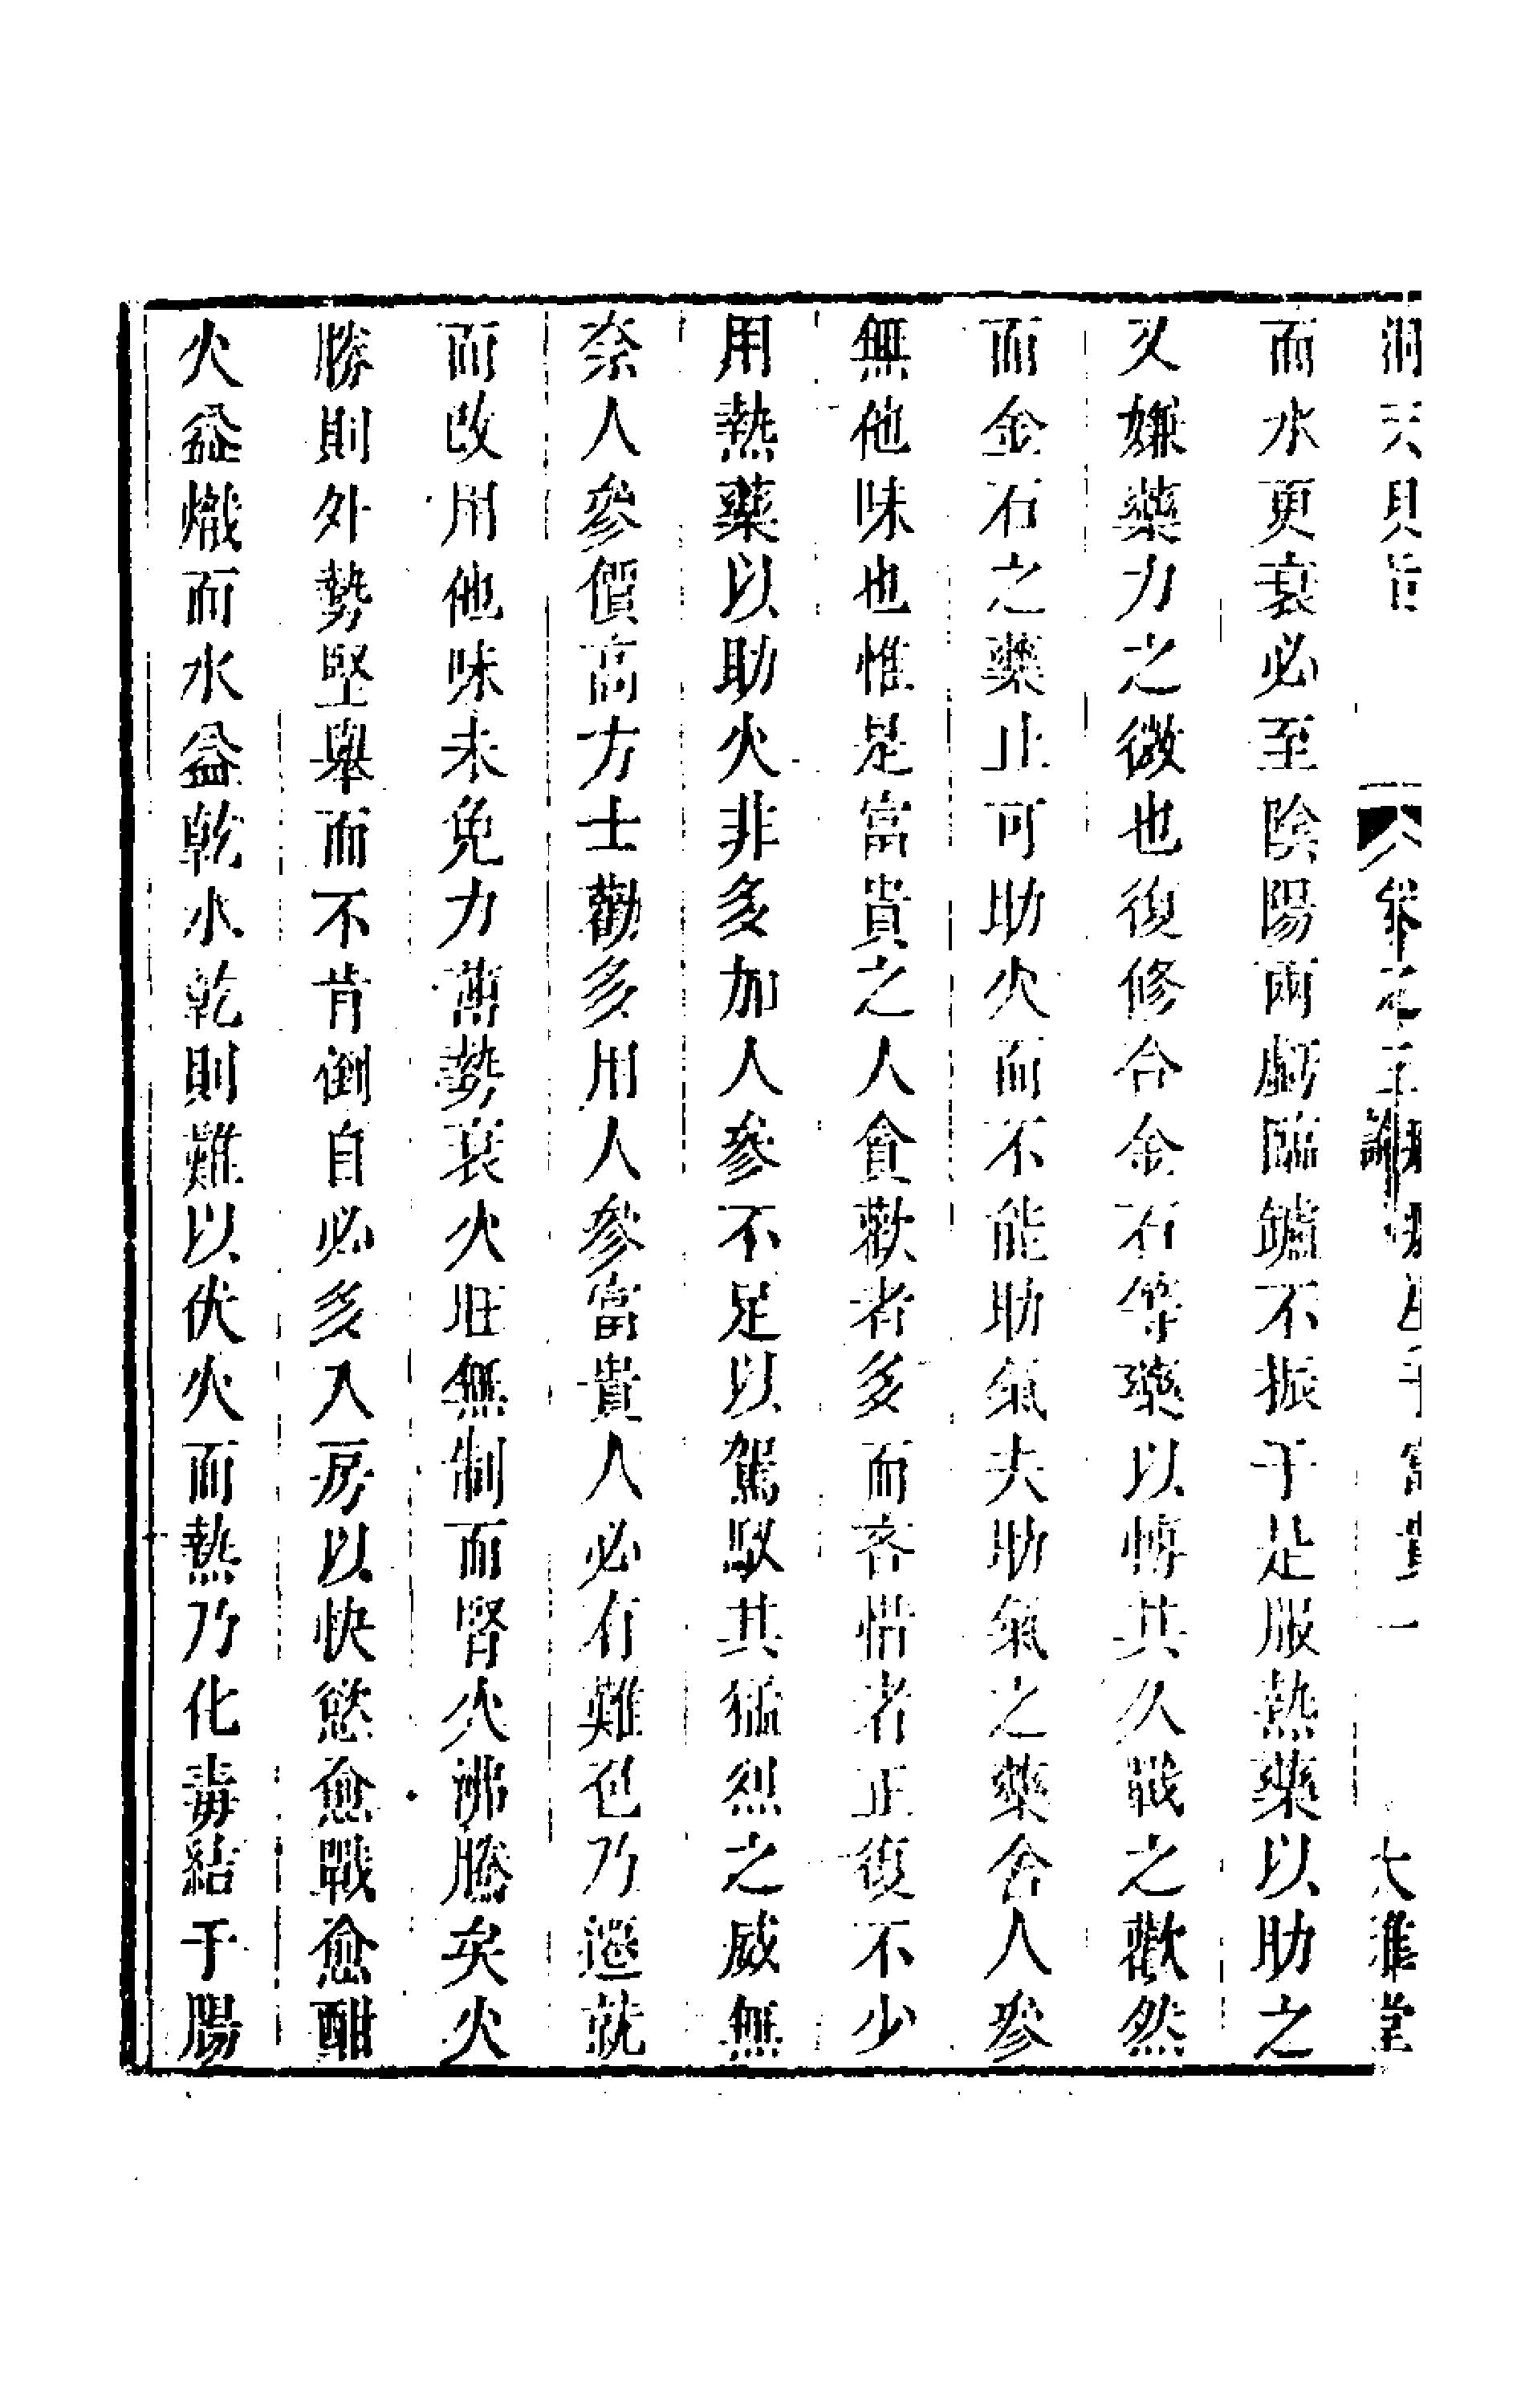 洞天
大雅堂
而水更衰必至陰陽兩虧臨鑪不振于是服熱藥以助之
又嫌藥力之微也復修合金石等藥以悕其久戰之歡然
而金石之藥止可助火而不能助氣夫助氣之藥舍人參
無他味也惟是富貴之人貪歡者多而吝惜者正復不少
用熱藥以助火非多加人參不足以駕馭其猛烈之威無
奈人參價高方士勸多用人參富貴人必有難色乃遷就
而改用他味未免力薄勢衰火旺無制而腎火沸騰矣火
勝則外勢堅舉而不肯倒自必多入房以快慾愈戰愈酣
火益熾而水益乾水乾則難以伏火而熱乃化毒結于腸